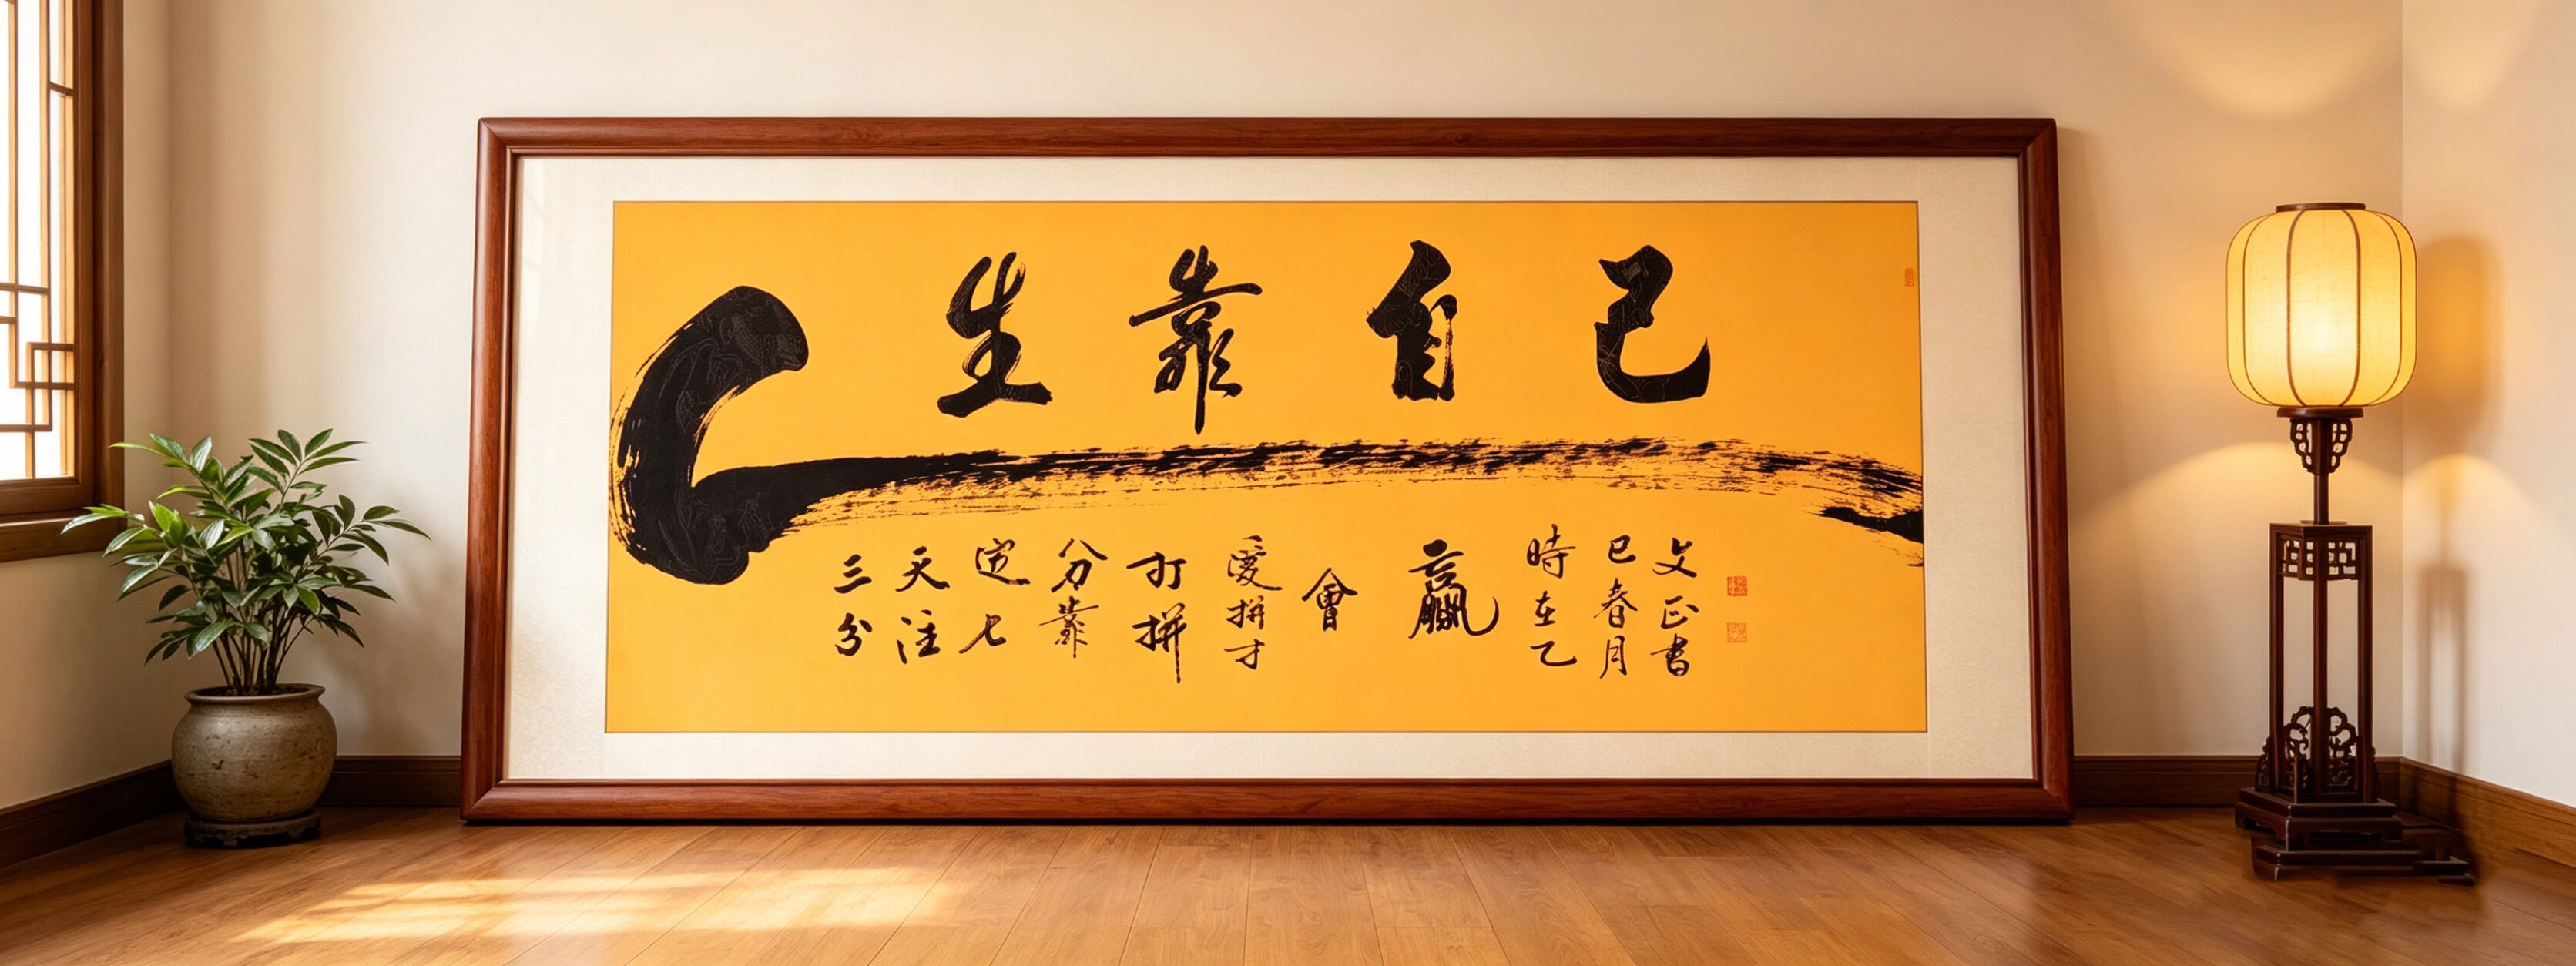 人生靠自己
三分
天注
定七
分靠
打拼
愛拼才
會
贏
時在乙
巳春月
文正書